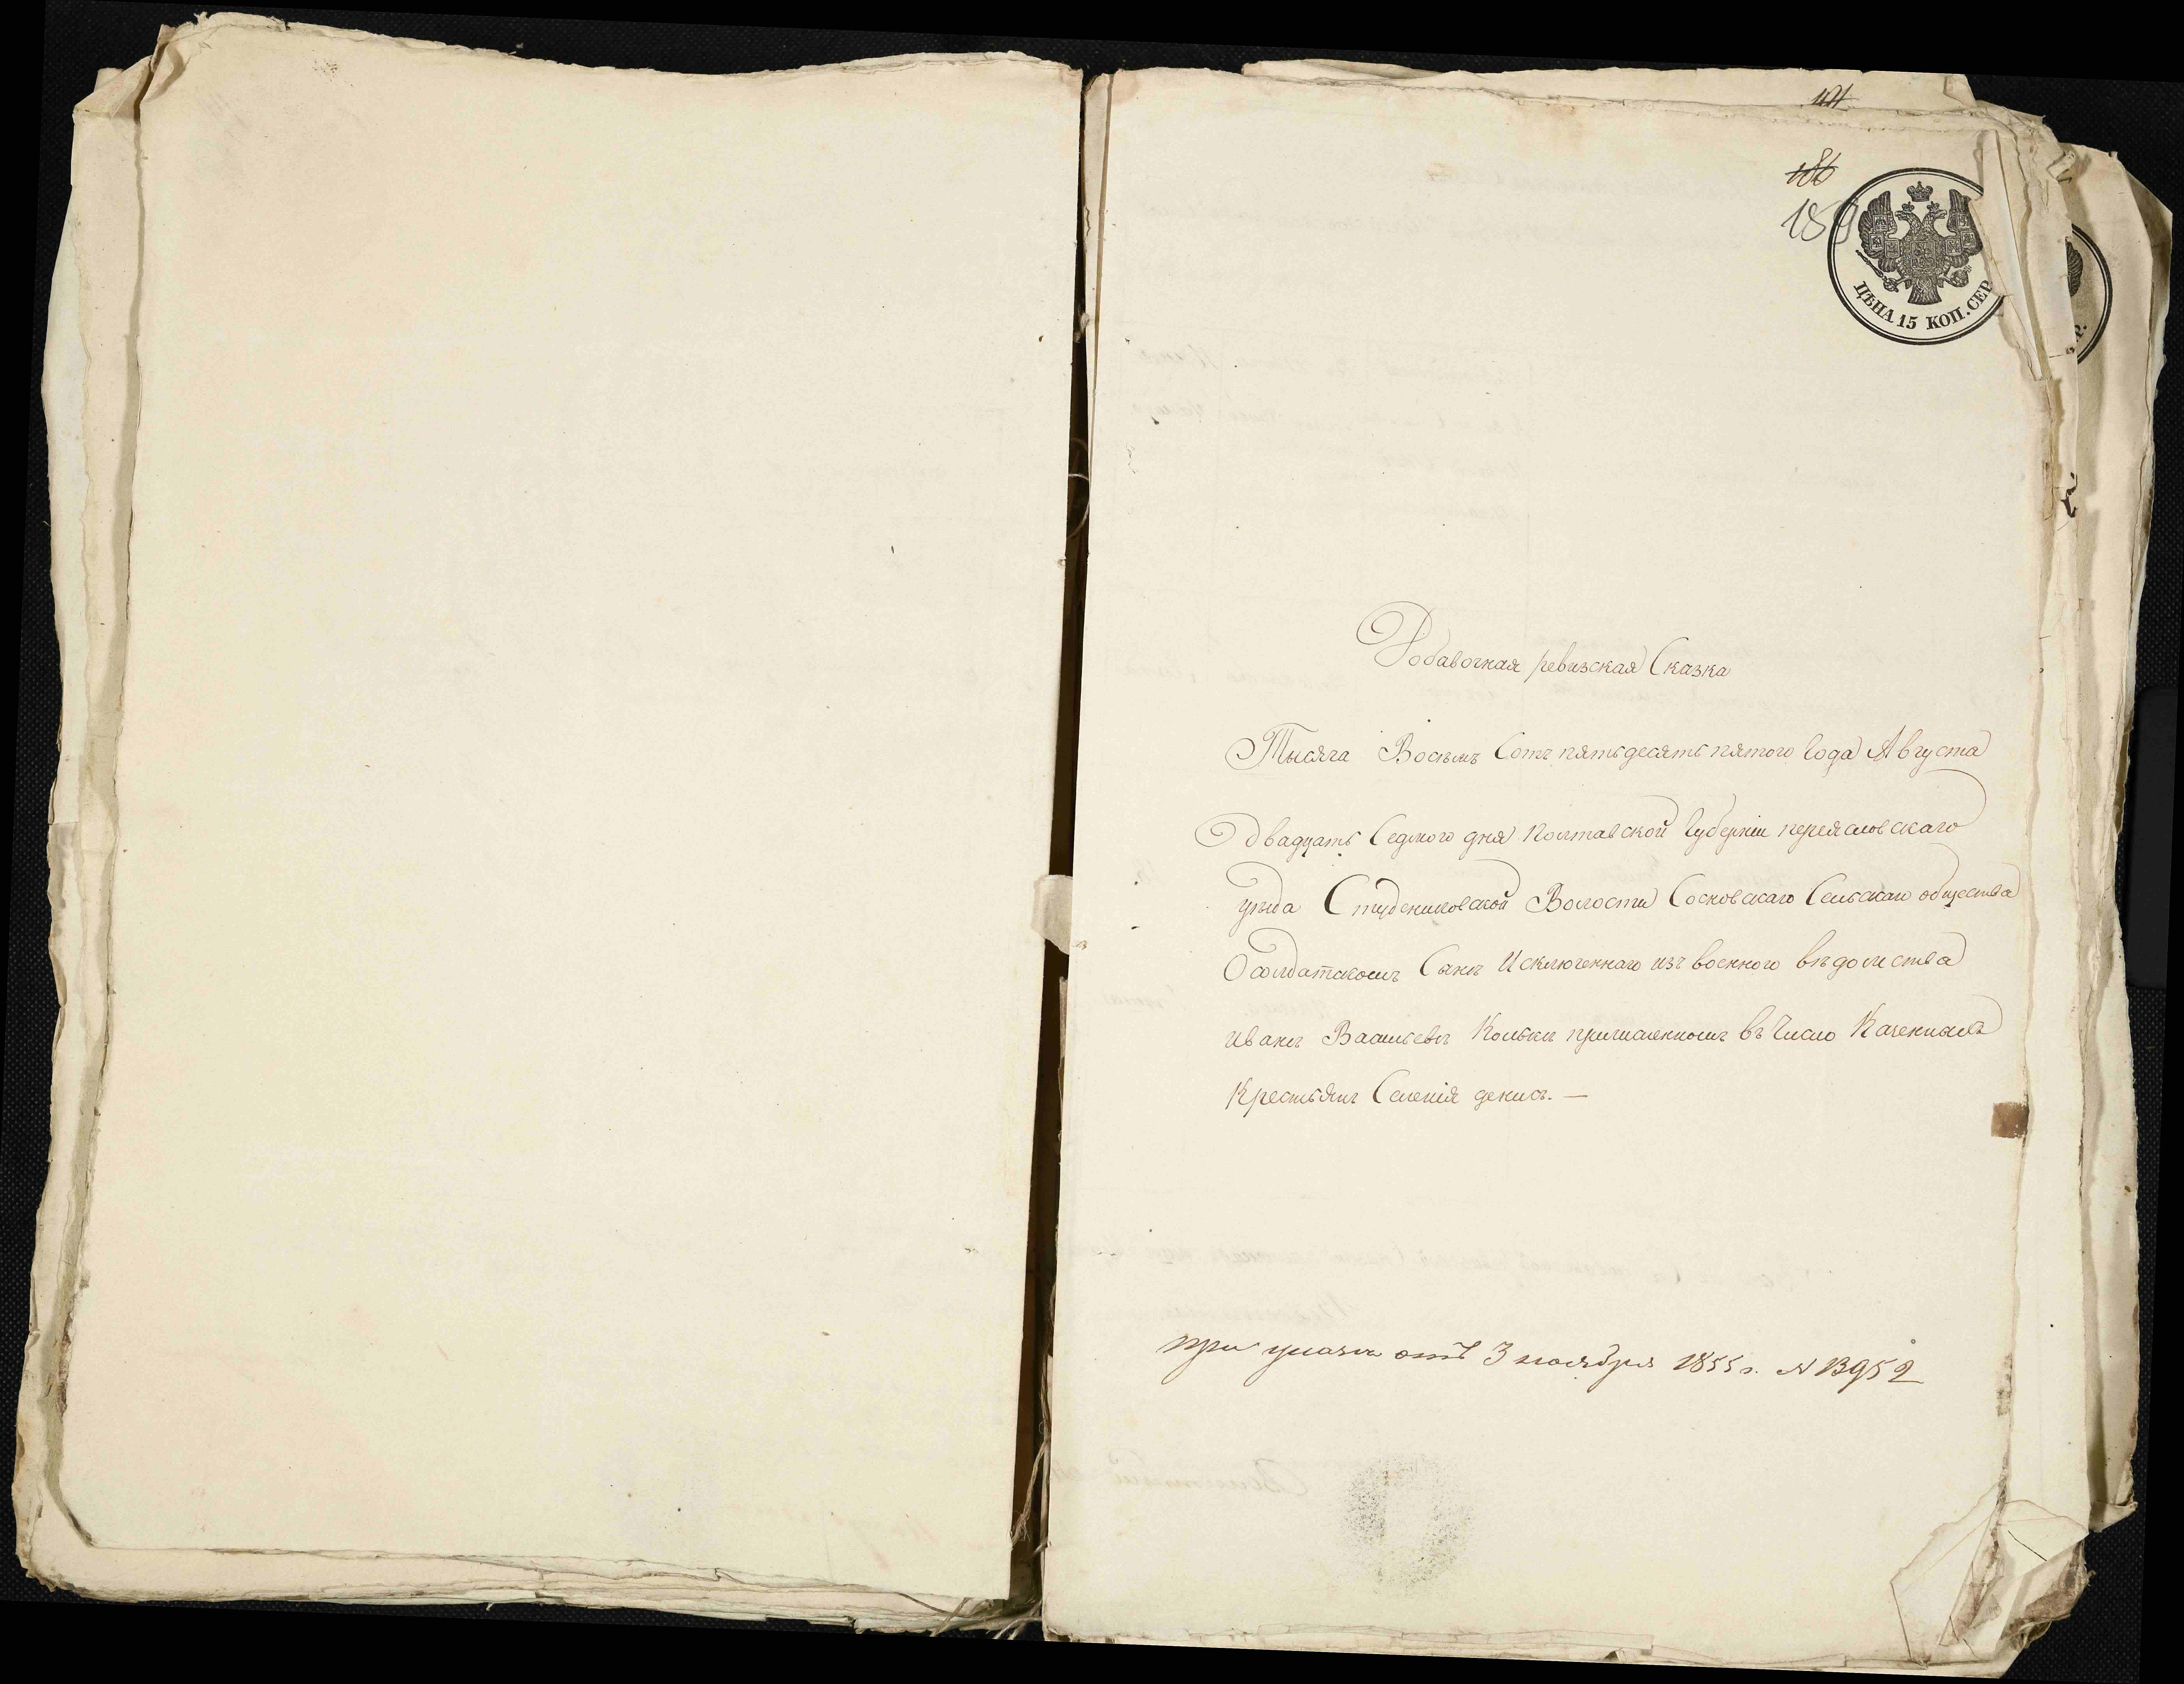 121
186
159
ЦѢНА 15 КОП. СЕР
Р.
Добавочная ревизская Сказка
Тысяча Восемь Сотъ пятьдесятъ пятого Года Августа
Двадцать Седмого дня Полтавской Губерніи переясловскаго
уѣзда Студениковской Волости Сосновскаго Сельскаго общества
О солдатскомъ Сынѣ Исключеннаго изъ военного вѣдомства
Иванѣ Васильевѣ причисленномъ въ Число Казенныхъ
Крестьянъ Селенія денисъ. —
при указѣ отъ 3 ноября 1855 г. № 13952